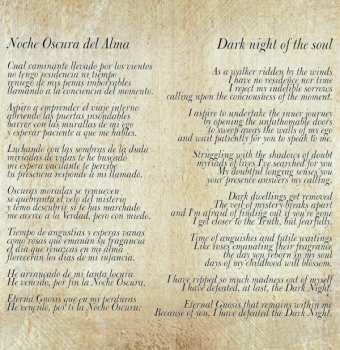 Noche Oscura del Alma
Cual caminante llevado por los vientos
no tengo residencia ni tiempo
reniego de mis penas imborrables
llamando a la conciencia del momento.
Aspiro a emprender el viaje interno
abriendo las puertas insondables
barrer con las murallas de mi ego
y esperar paciente a que me hables.
Luchando con las sombras de la duda
miriadas de vidas te he buscado
mi espera vacilante te percibe
tu presencia responde a mi llamado.
Oscuras moradas se remueven
se quebranta el velo del misterio
y temo descubrir si te has marchado
me acerco a la Verdad, pero con miedo.
Tiempo de angustias y esperas vanas
como rosas que emanan su fragancia
el día que renazcas en mi alma
florecerán los días de mi infancia.
He arrancado de mi tanta locura
He vencido, por fin la Noche Oscura.
Eterna Gnosis que en mi perduras
He vencido, por ti la Noche Oscura.
Dark night of the soul
As a walker ridden by the winds
I have no residence nor time
I reject my indelible sorrows
calling upon the conciousness of the moment.
I aspire to undertake the inner journey
by opening the unfathomable doors
to sweep away the walls of my ego
and wait patiently for you to speak to me.
Struggling with the shadows of doubt
myriads of lives I've searched for you
My doubtful longing senses you
your presence answers my calling.
Dark dwellings get removed
The veil of mystery breaks apart
and I'm afraid of finding out if you're gone
I get closer to the Truth, but fearfully.
Time of anguishes and futile waitings
Like roses emanating their fragrance
the day you reborn in my soul
days of my childhood will blossom.
I have ripped so much madness out of myself
I have defeated, at last, the Dark Night.
Eternal Gnosis that remains within me
Because of you, I have defeated the Dark Night.